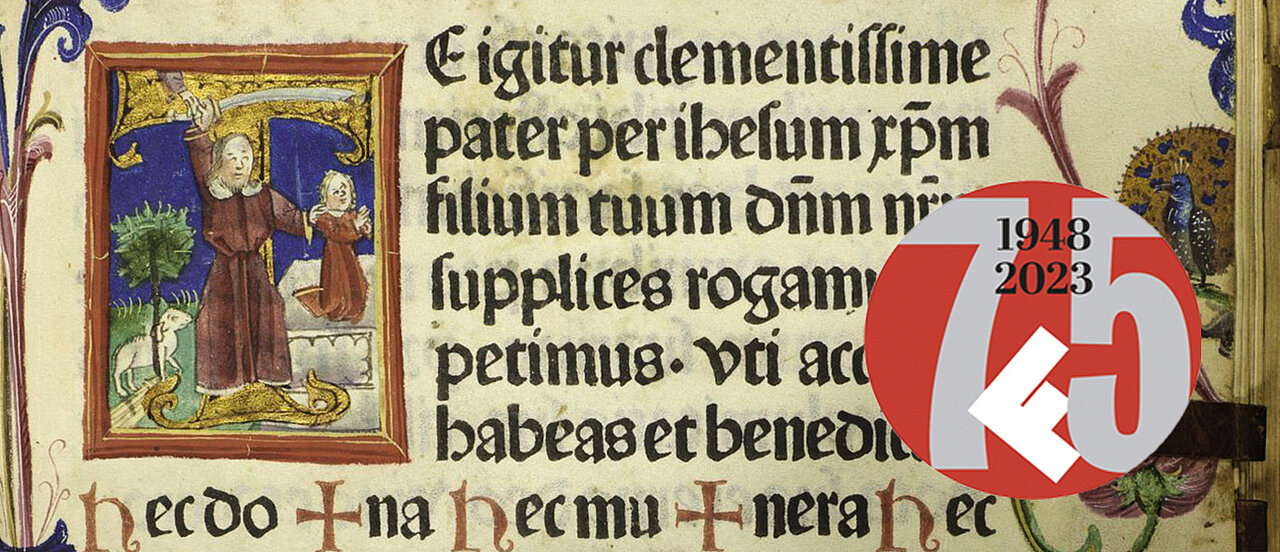 TE igitur clementiſſime
pater per iheſum xp̄m
filium tuum dn̄m nr̄
ſupplices rogamu
petimus· vti acc
habeas et benedic
hec do + na hec mu + nera hec
1948
2023
75